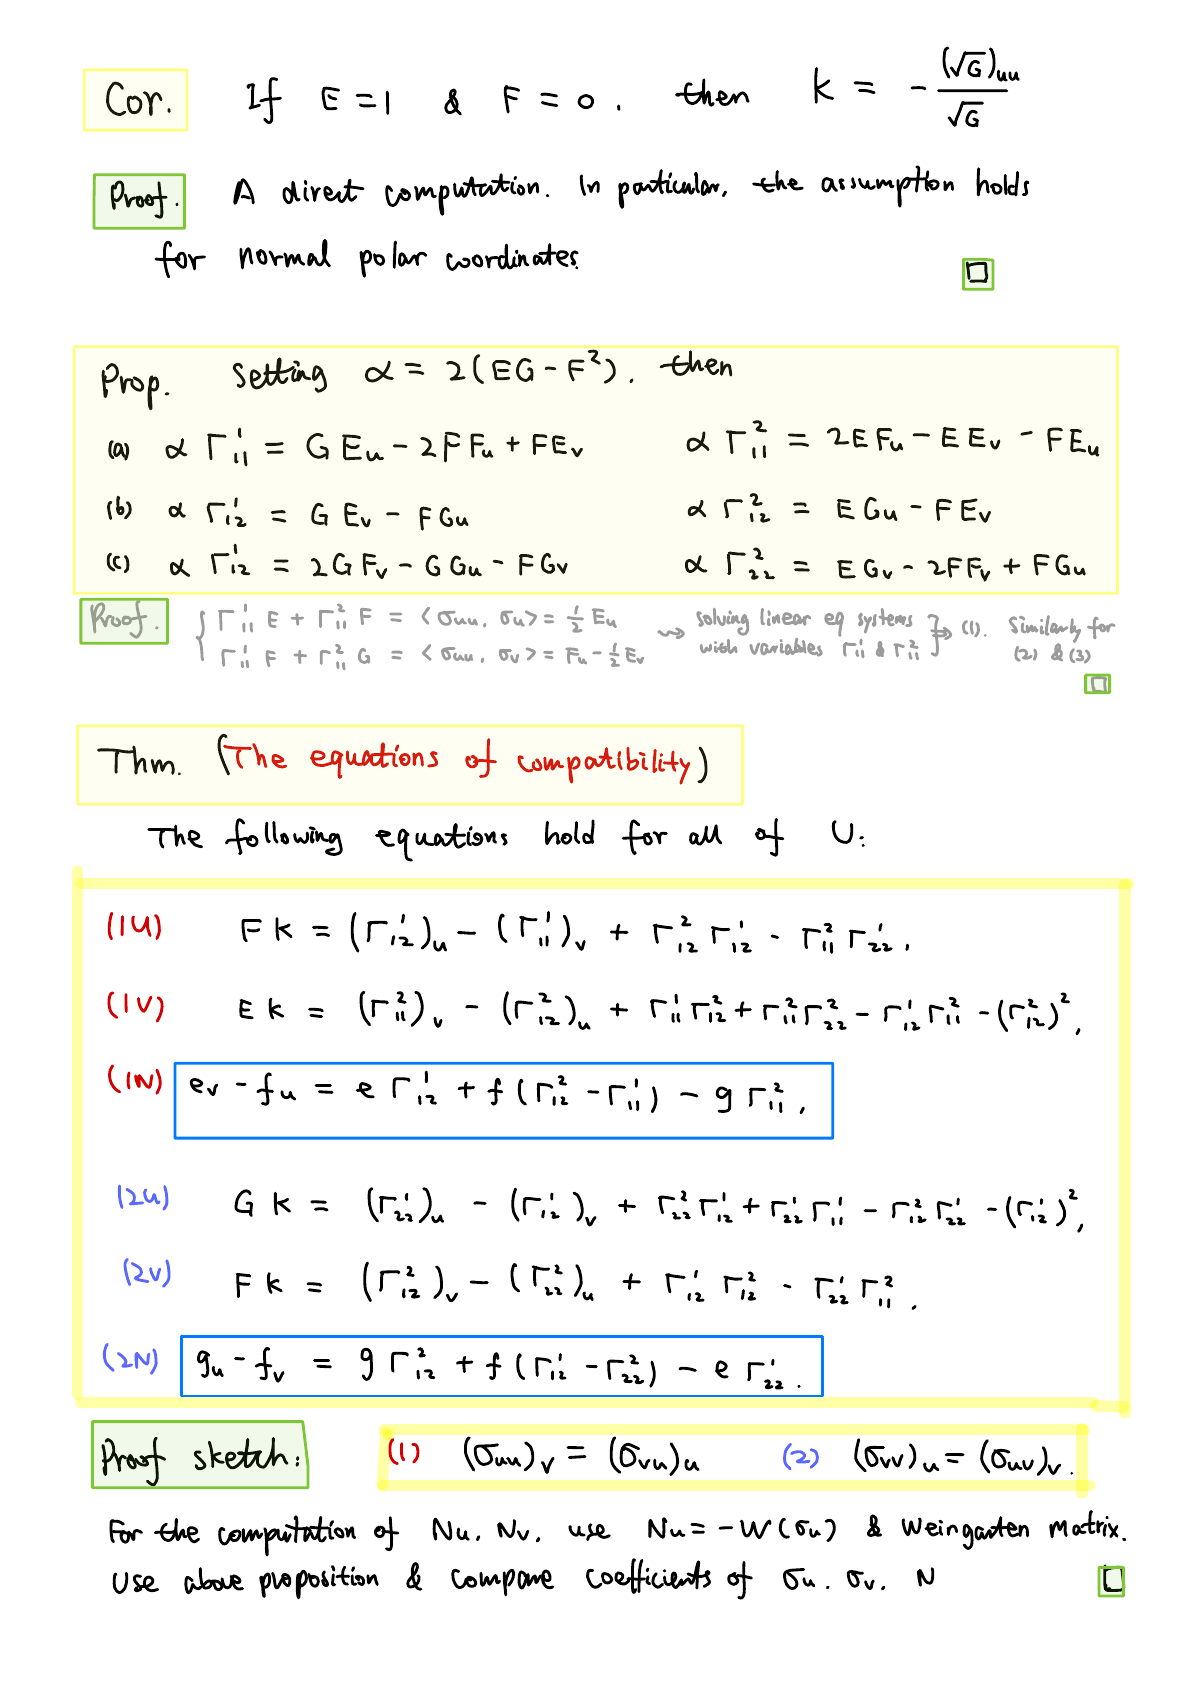 Cor. If E = 1 & F = 0. then K = - (√G)uu / √G
Proof. A direct computation. In particular, the assumption holds
for normal polar coordinates. □
Prop. Setting α = 2(EG - F²). then
(a) α Γ¹₁₁ = G Eu - 2F Fu + F Ev α Γ²₁₁ = 2E Fu - E Ev - F Eu
(b) α Γ¹₁₂ = G Ev - F Gu α Γ²₁₂ = E Gu - F Ev
(c) α Γ¹₁₂ = 2G Fv - G Gu - F Gv α Γ²₂₂ = E Gv - 2F Fv + F Gu
Proof. { Γ¹₁₁ E + Γ²₁₁ F = <σuu, σu> = ½ Eu ⇝ solving linear eq systems } → (1). Similarly for
Γ¹₁₁ F + Γ²₁₁ G = <σuu, σv> = Fu - ½ Ev with variables Γ¹₁₁ & Γ²₁₁ (2) & (3)
□
Thm. (The equations of compatibility)
The following equations hold for all of U:
(1u) F K = (Γ¹₁₂)u - (Γ¹₁₁)v + Γ²₁₂ Γ¹₁₂ - Γ²₁₁ Γ¹₂₂,
(1v) E K = (Γ²₁₁)v - (Γ²₁₂)u + Γ¹₁₁ Γ²₁₂ + Γ²₁₁ Γ²₂₂ - Γ¹₁₂ Γ²₁₁ - (Γ²₁₂)²,
(1N) ev - fu = e Γ¹₁₂ + f (Γ²₁₂ - Γ¹₁₁) - g Γ²₁₁,
(2u) G K = (Γ¹₂₂)u - (Γ¹₁₂)v + Γ²₂₂ Γ¹₁₂ + Γ¹₂₂ Γ¹₁₁ - Γ²₁₂ Γ¹₂₂ - (Γ¹₁₂)²,
(2v) F K = (Γ²₁₂)v - (Γ²₂₂)u + Γ¹₁₂ Γ²₁₂ - Γ¹₂₂ Γ²₁₁.
(2N) gu - fv = g Γ²₁₂ + f (Γ¹₁₂ - Γ²₂₂) - e Γ¹₂₂.
Proof sketch: (1) (σuu)v = (σvu)u (2) (σvv)u = (σuv)v.
For the computation of Nu, Nv, use Nu = -W(σu) & Weingarten Matrix.
Use above proposition & compare coefficients of σu, σv, N □